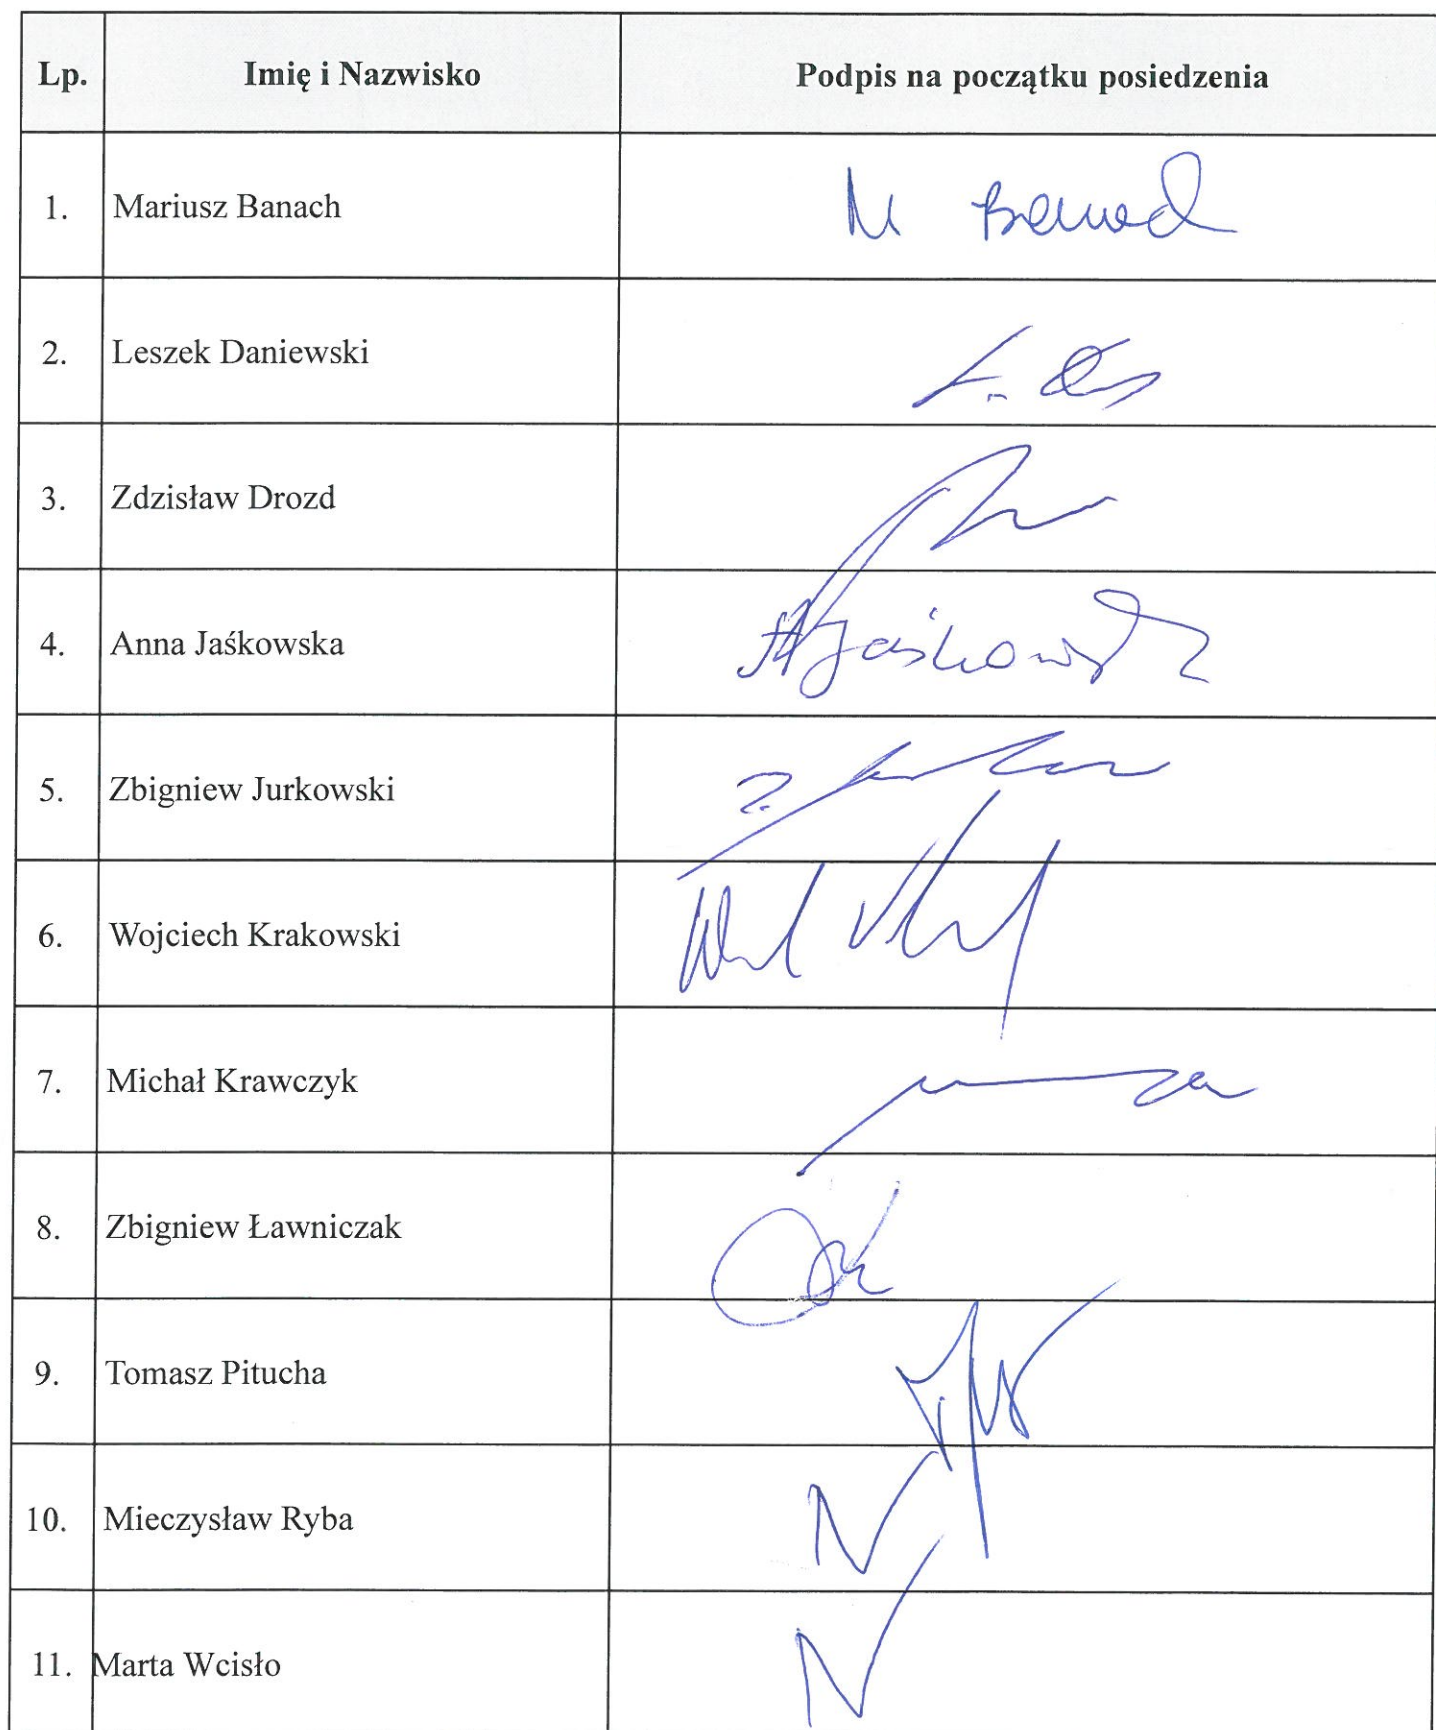 Lp. Imię i Nazwisko Podpis na początku posiedzenia
1. Mariusz Banach M Banach
2. Leszek Daniewski
3. Zdzisław Drozd
4. Anna Jaśkowska AJaśkowska
5. Zbigniew Jurkowski
6. Wojciech Krakowski
7. Michał Krawczyk
8. Zbigniew Ławniczak
9. Tomasz Pitucha
10. Mieczysław Ryba N
11. Marta Wcisło N